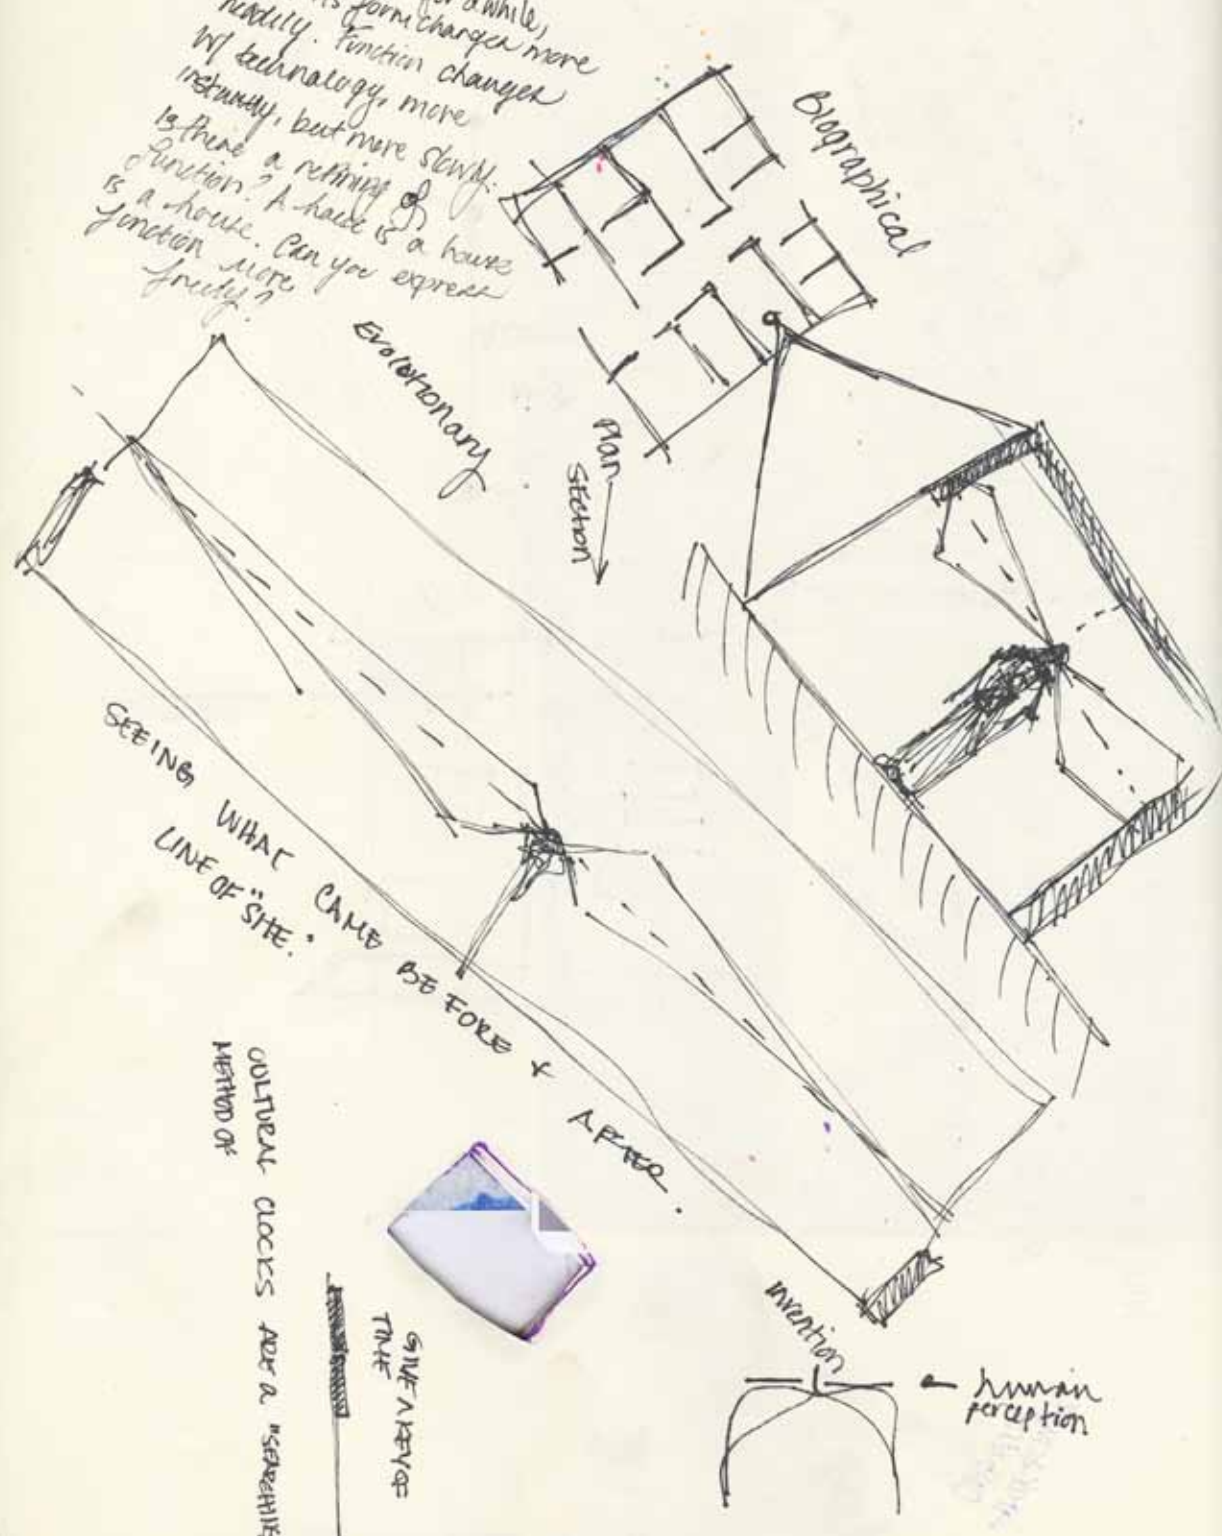 for awhile,
its form changes more
readily. Function changes
w/ technology, more
instantly, but more slowly.
Is there a refining of
function? A house is a house
is a house. Can you express
function more
freely?
Biographical
Evolutionary
Plan
Section
SEEING WHAT CAME BEFORE & AFTER.
LINE OF "SITE."
CULTURAL CLOCKS ARE A "SEARCHING
METHOD OF
GIVE A KEY OF
TIME
Invention
human
perception